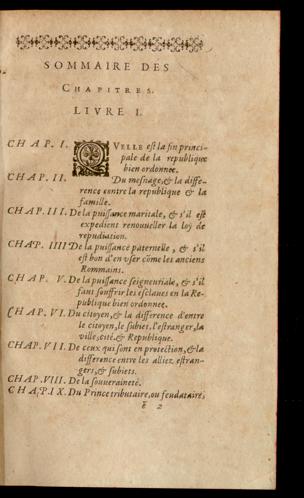 SOMMAIRE DES
CHAPITRES.
LIVRE I.
CHAP. I. QVELLE est la fin princi-
pale de la republique
bien ordonnee.
CHAP. II. Du mesnage, & la diffe-
rence entre la republique & la
famille.
CHAP. III. De la puissance maritale, & s'il est
expedient renouueller la loy de
repudiation.
CHAP. IIII De la puissance paternelle, & s'il
est bon d'en vser cõme les anciens
Rommains.
CHAP. V. De la puissance seigneuriale, & s'il
faut souffrir les esclaues en la Re-
publique bien ordonnee.
CHAP. VI. Du citoyen, & la difference d'entre
le citoyen, le subiet, l'estranger, la
ville, cité, & Republique.
CHAP. VII. De ceux qui sont en protection, & la
difference entre les alliez, estran-
gers, & subiets.
CHAP. VIII. De la souueraineté.
CHAP. IX. Du Prince tributaire, ou feudataire,
ẽ 2